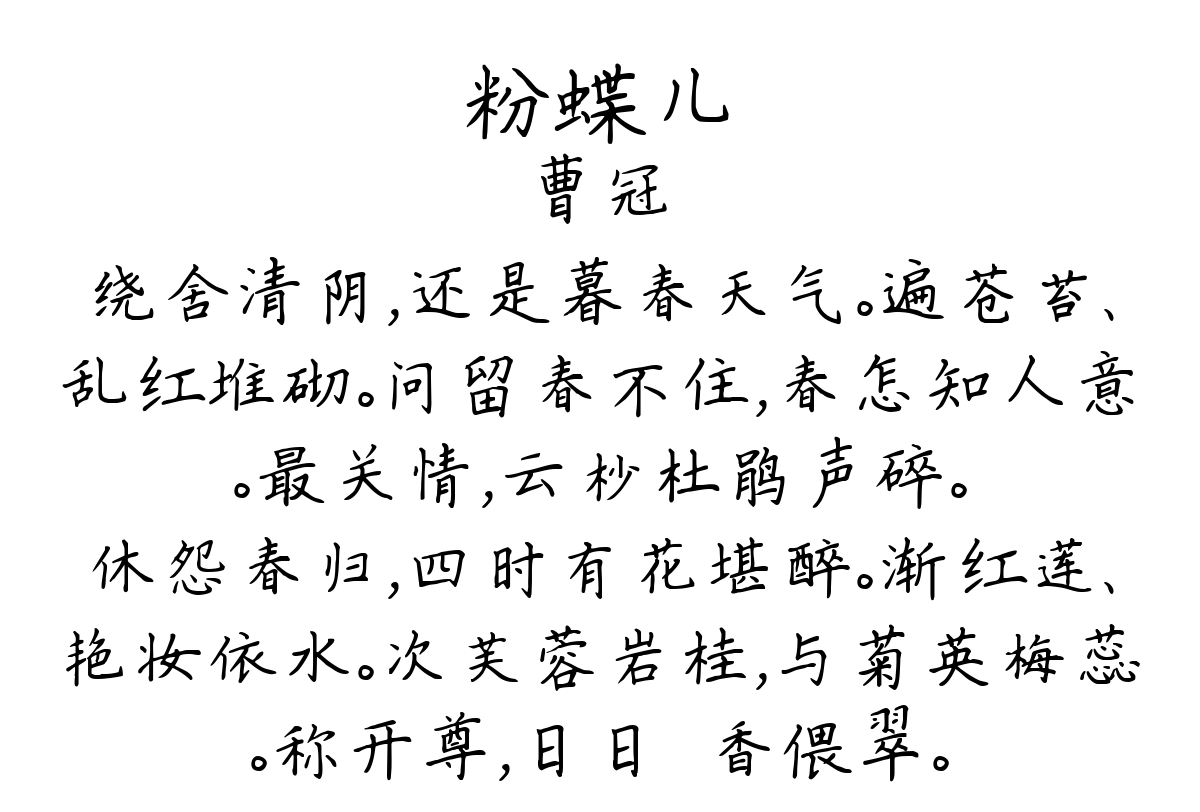 粉蝶儿
曹冠
绕舍清阴,还是暮春天气。遍苍苔、
乱红堆砌。问留春不住,春怎知人意
。最关情,云杪杜鹃声碎。
休怨春归,四时有花堪醉。渐红莲、
艳妆依水。次芙蓉岩桂,与菊英梅蕊
。称开尊,日日 香偎翠。